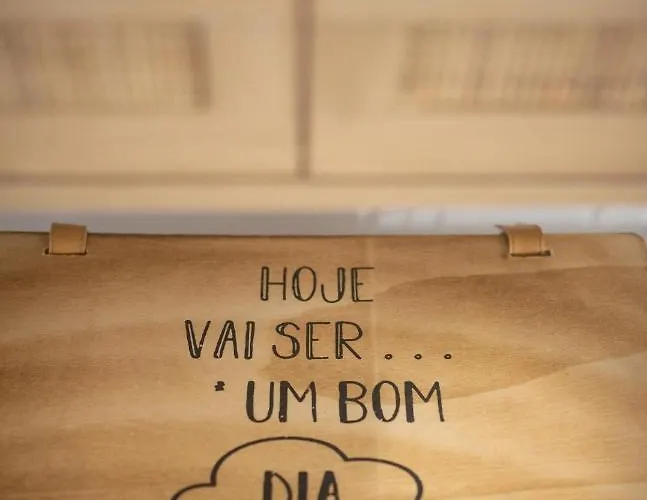 HOJE
VAI SER ...
* UM BOM
DIA